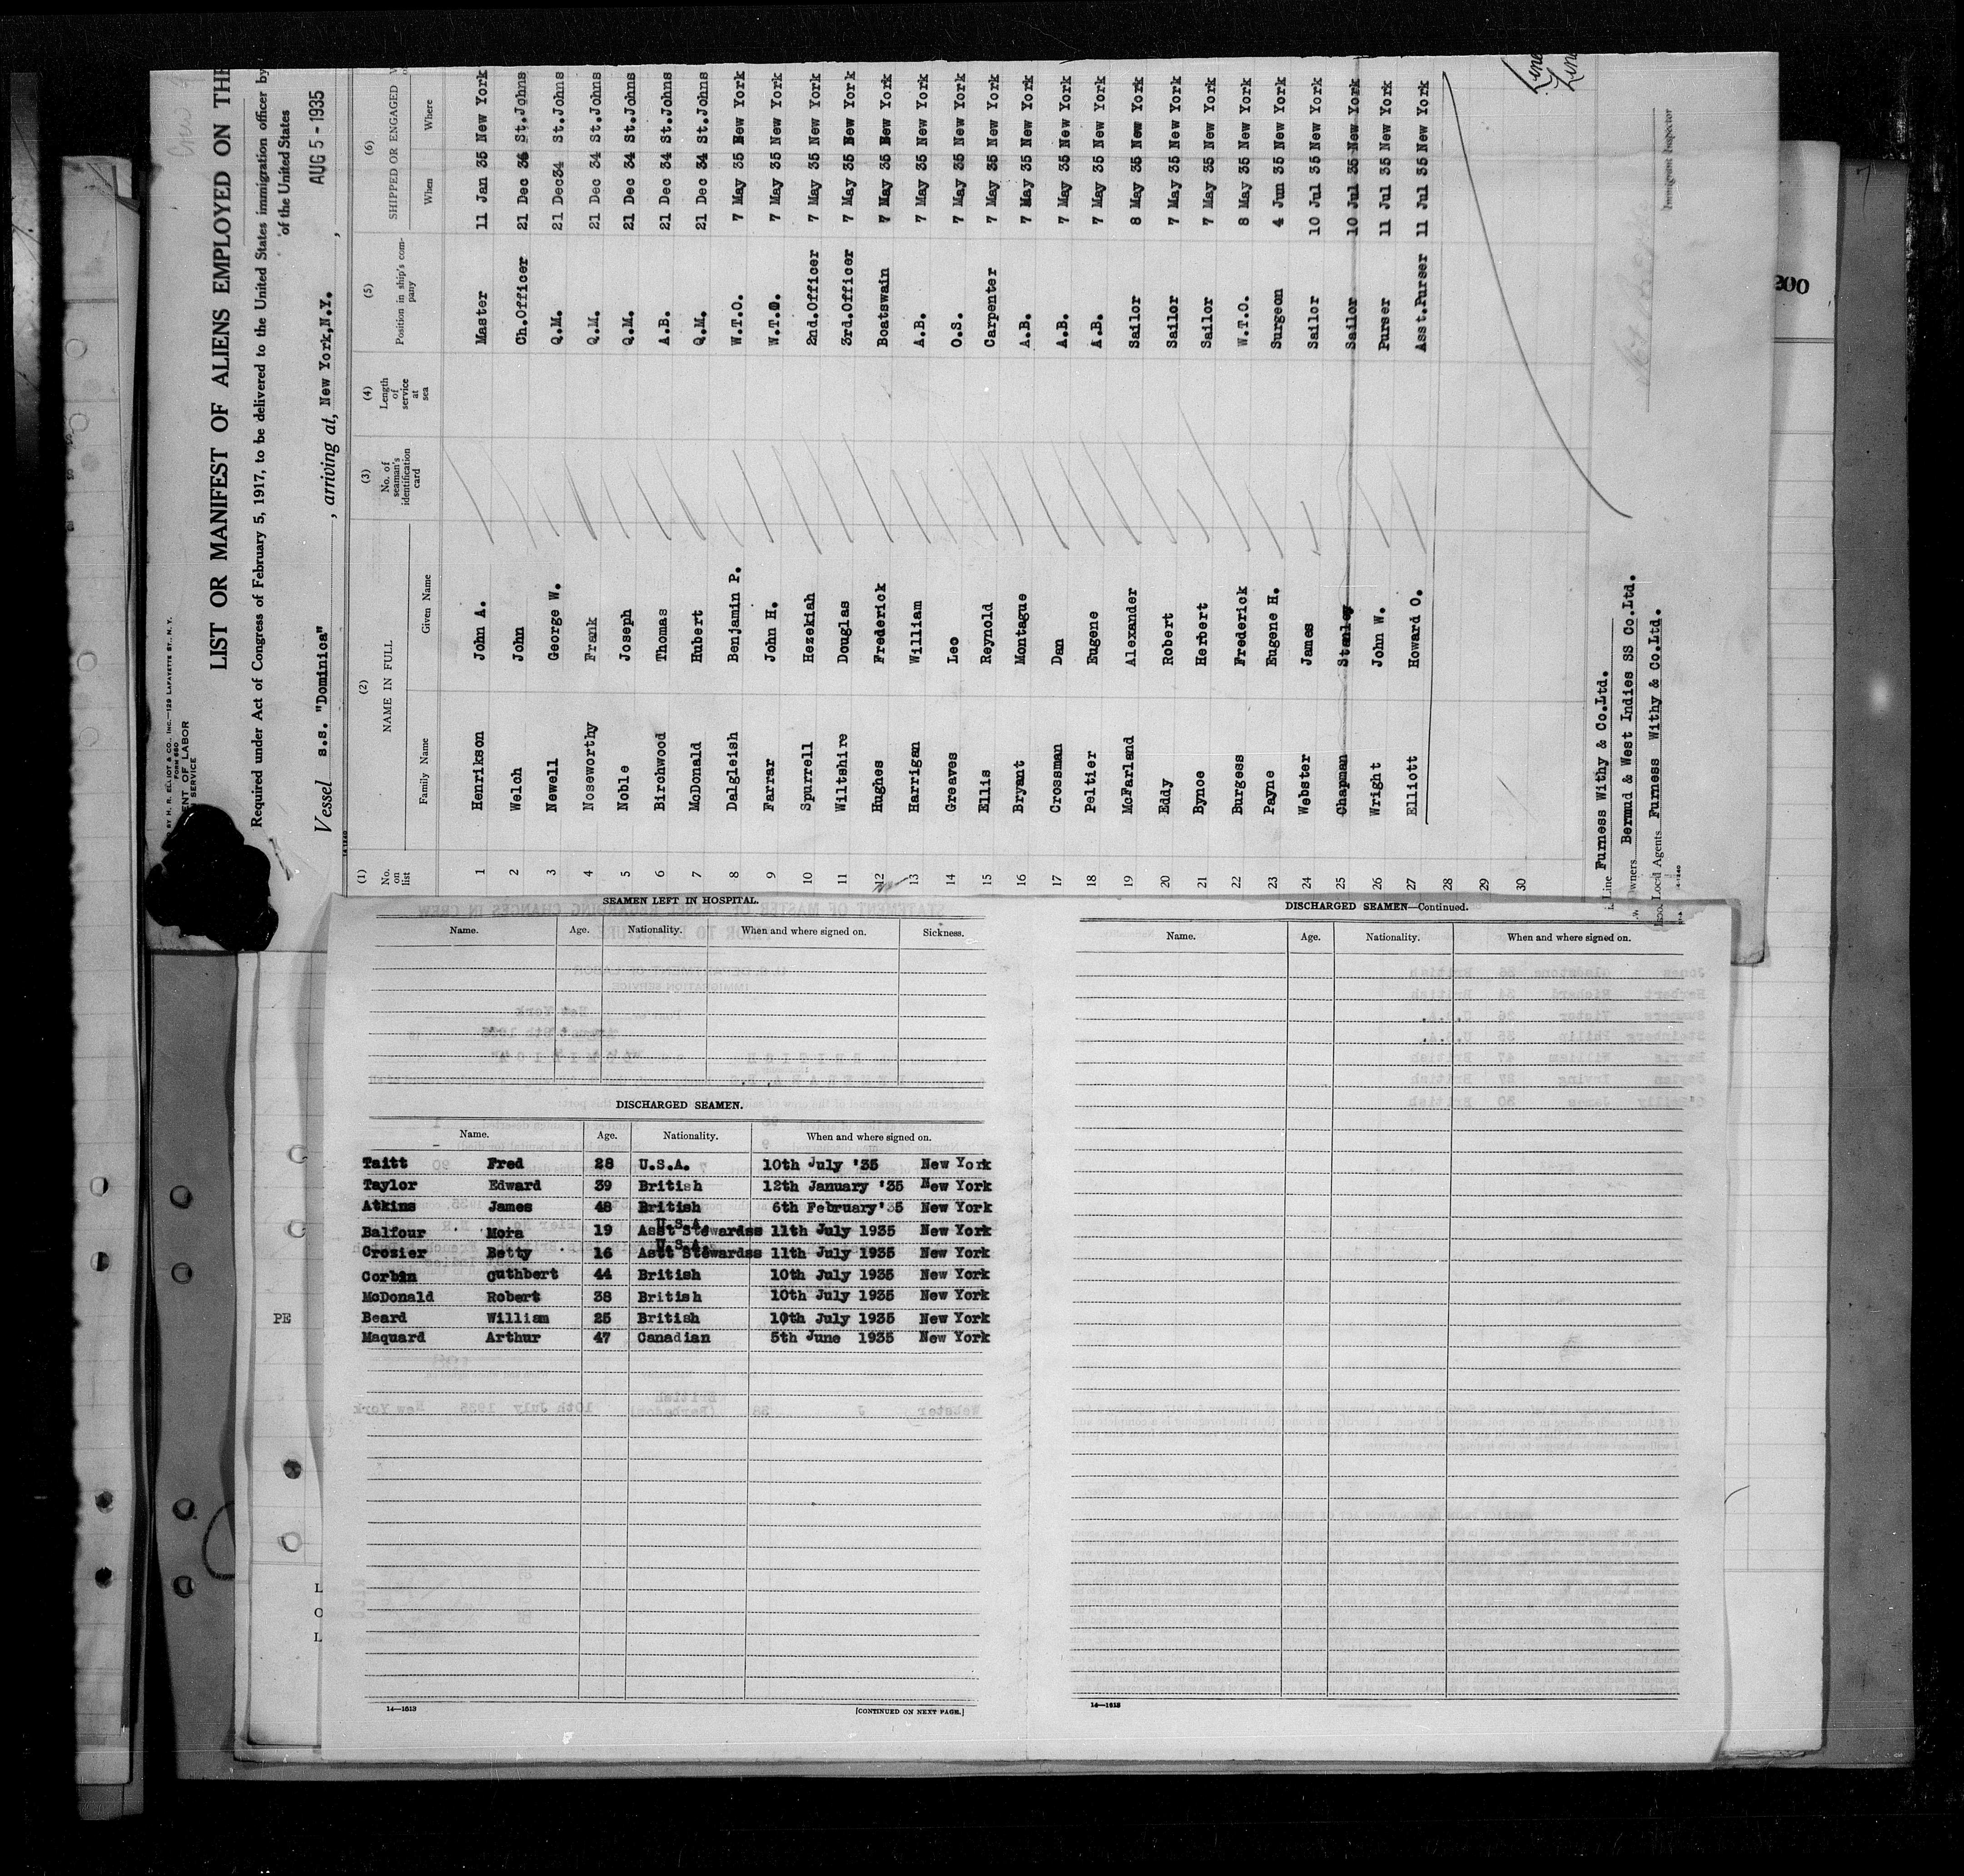 BY H. R. ELLIOT & CO., INC.—129 LAFAYETTE ST., N. Y.
FORM 680
ENT OF LABOR
SERVICE
LIST OR MANIFEST OF ALIENS EMPLOYED ON THE
Required under Act of Congress of February 5, 1917, to be delivered to the United States immigration officer by
of the United States
AUG 5 - 1935
Vessel s.s. "Dominica" , arriving at, New York,N.Y. ,
(1) (2) (3) (4) (5) (6)
No. on list NAME IN FULL No. of seaman's identification card Length of service at sea Position in ship's company SHIPPED OR ENGAGED
Family Name Given Name When Where
1 Henrikson John A. Master 11 Jan 35 New York
2 Welch John Ch.Officer 21 Dec 34 St.Johns
3 Newell George W. Q.M. 21 Dec34 St.Johns
4 Noseworthy Frank Q.M. 21 Dec 34 St.Johns
5 Noble Joseph Q.M. 21 Dec 34 St.Johns
6 Birchwood Thomas A.B. 21 Dec 34 St.Johns
7 McDonald Hubert Q.M. 21 Dec 34 St.Johns
8 Dalgleish Benjamin P. W.T.O. 7 May 35 New York
9 Farrar John H. W.T.O. 7 May 35 New York
10 Spurrell Hezekiah 2nd.Officer 7 May 35 New York
11 Wiltshire Douglas 3rd.Officer 7 May 35 New York
12 Hughes Frederick Boatswain 7 May 35 New York
13 Harrigan William A.B. 7 May 35 New York
14 Greaves Leo O.S. 7 May 35 New York
15 Ellis Reynold Carpenter 7 May 35 New York
16 Bryant Montague A.B. 7 May 35 New York
17 Crossman Dan A.B. 7 May 35 New York
18 Peltier Eugene A.B. 7 May 35 New York
19 McFarland Alexander Sailor 8 May 35 New York
20 Eddy Robert Sailor 7 May 35 New York
21 Bynoe Herbert Sailor 7 May 35 New York
22 Burgess Frederick W.T.O. 8 May 35 New York
23 Payne Eugene H. Surgeon 4 Jun 35 New York
24 Webster James Sailor 10 Jul 35 New York
25 Chapman Stanley Sailor 10 Jul 35 New York
26 Wright John W. Purser 11 Jul 35 New York
27 Elliott Howard O. Asst.Purser 11 Jul 35 New York
28
29
30
Line Furness Withy & Co.Ltd.
Owners Bermud & West Indies SS Co.Ltd.
Local Agents Furness Withy & Co.Ltd.
Immigrant Inspector
200
SEAMEN LEFT IN HOSPITAL.
Name. Age. Nationality. When and where signed on. Sickness.
DISCHARGED SEAMEN.
Name. Age. Nationality. When and where signed on.
Taitt Fred 28 U.S.A. 10th July '35 New York
Taylor Edward 39 British 12th January '35 New York
Atkins James 48 British 6th February'35 New York
U.S.A.
Balfour Moira 19 Asst Stewardss 11th July 1935 New York
U.S.A.
Crozier Betty 16 Asst Stewardss 11th July 1935 New York
Corbin Cuthbert 44 British 10th July 1935 New York
McDonald Robert 38 British 10th July 1935 New York
Beard William 25 British 10th July 1935 New York
Maquard Arthur 47 Canadian 5th June 1935 New York
14—1613 [CONTINUED ON NEXT PAGE.]
DISCHARGED SEAMEN—Continued.
Name. Age. Nationality. When and where signed on.
14—1613
PE
L
O
L